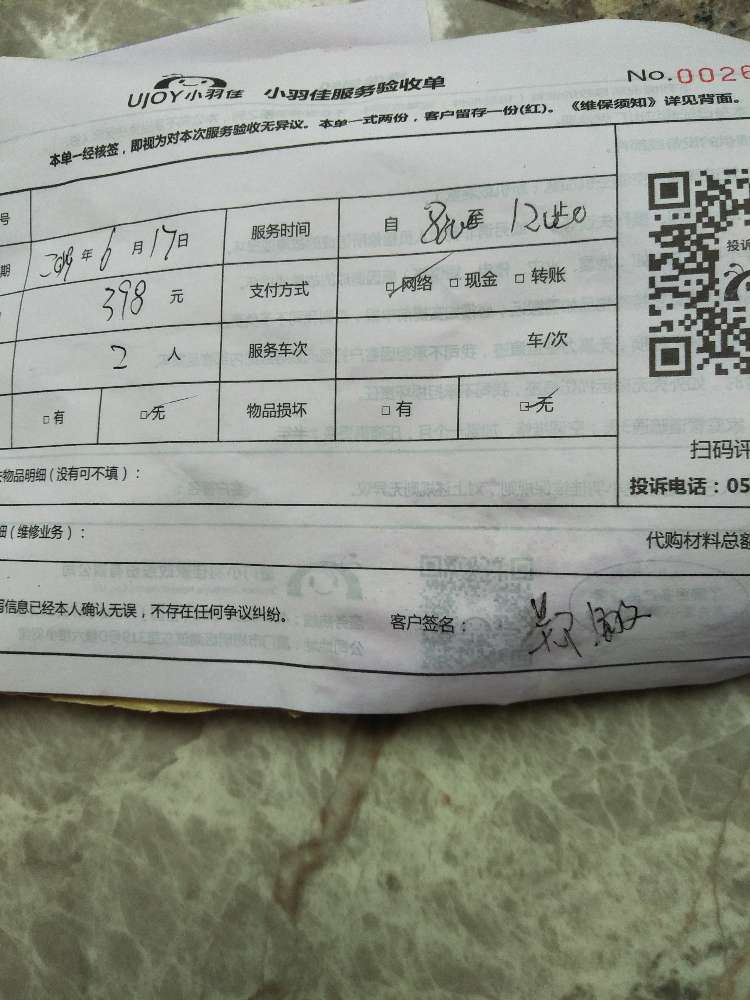 UJOY小羽佳 小羽佳服务验收单 No.0026
本单一经核签，即视为对本次服务验收无异议。本单一式两份，客户留存一份(红)。《维保须知》详见背面。
号
期 2019年6月17日 服务时间 自 8:00至 12:00止
398元 支付方式 □网络 □现金 □转账
2人 服务车次 车/次
□有 □无 物品损坏 □有 □无
投诉
扫码评
物品明细(没有可不填)：
投诉电话：05
细(维修业务)：
代购材料总额
写信息已经本人确认无误，不存在任何争议纠纷。 客户签名：